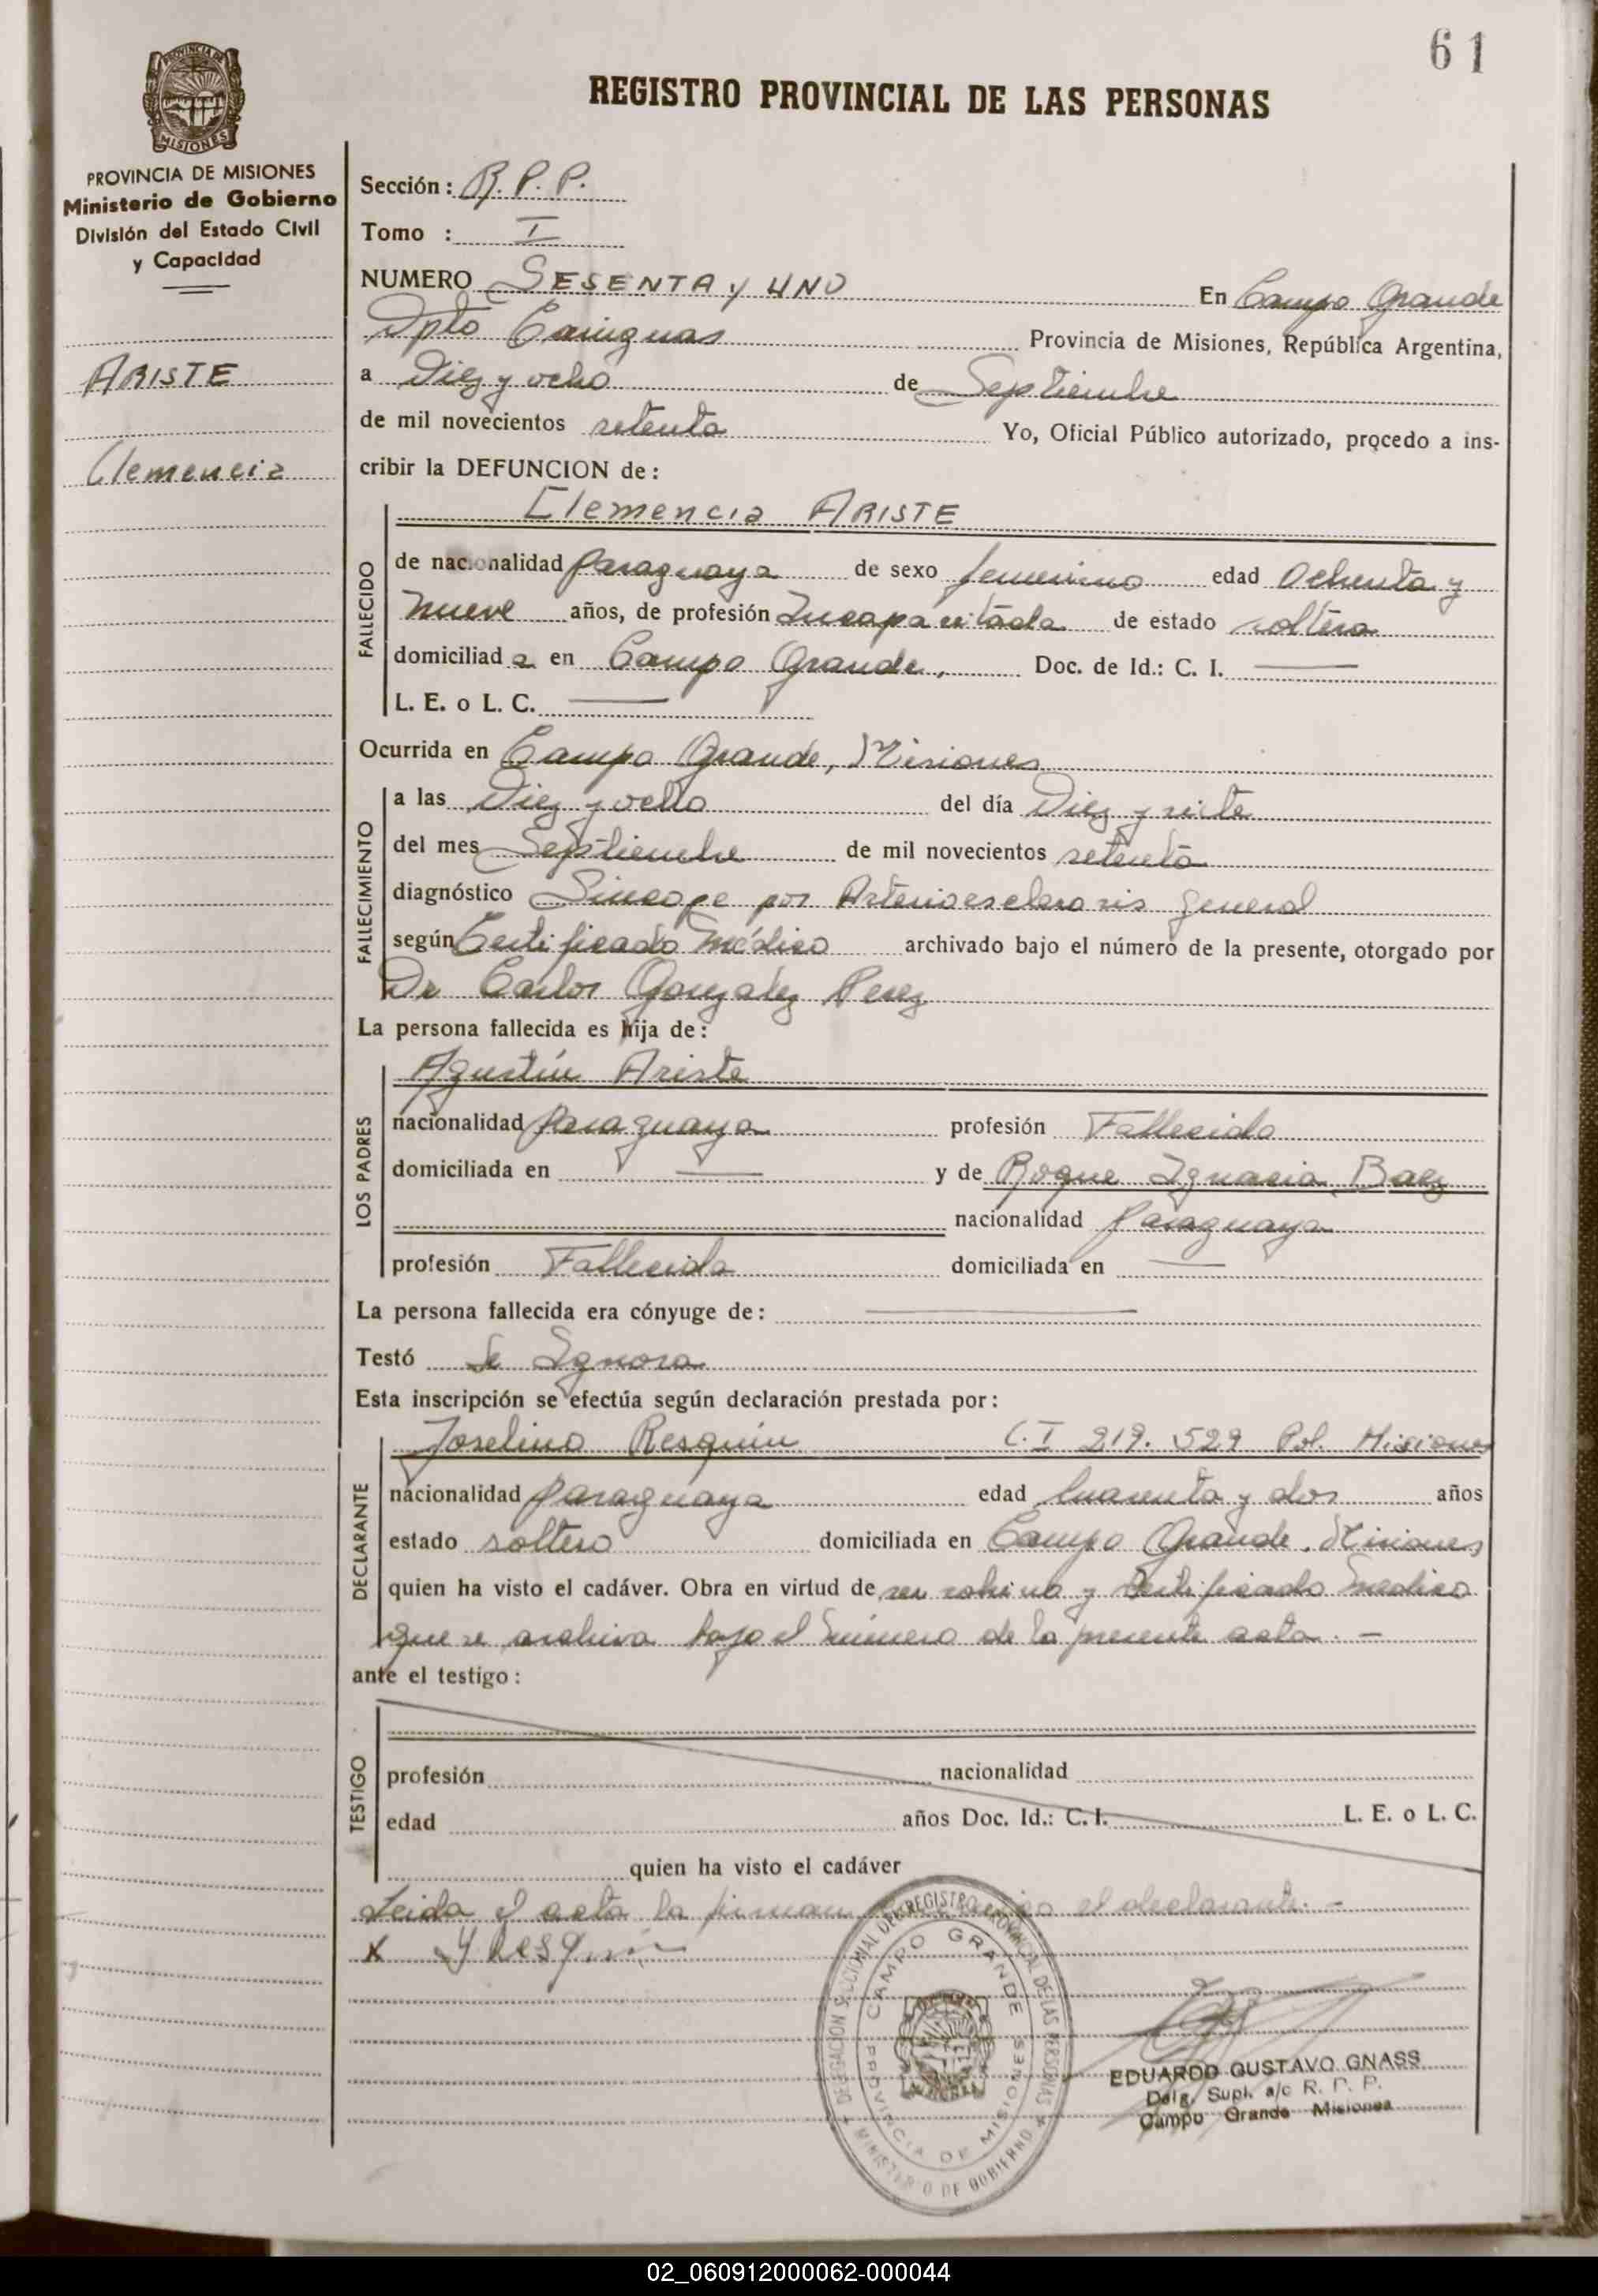 61
REGISTRO PROVINCIAL DE LAS PERSONAS
PROVINCIA DE
MISIONES
PROVINCIA DE MISIONES
Ministerio de Gobierno
División del Estado Civil
y Capacidad
ARISTE
Clemencia
Sección: R. P. P.
Tomo : I
NUMERO SESENTA y UNO En Campo Grande
Dpto Cainguas Provincia de Misiones, República Argentina,
a Diez y ocho de Septiembre
de mil novecientos setenta Yo, Oficial Público autorizado, procedo a ins-
cribir la DEFUNCION de:
Clemencia ARISTE
FALLECIDO
de nacionalidad Paraguaya de sexo femenino edad Ochenta y
nueve años, de profesión Incapacitada de estado soltera
domiciliada en Campo Grande, Doc. de Id.: C. I.
L. E. o L. C.
Ocurrida en Campo Grande, Misiones
FALLECIMIENTO
a las Diez y ocho del día Diez y siete
del mes Septiembre de mil novecientos setenta
diagnóstico Sincope por Arterioesclerosis general
según Certificado médico archivado bajo el número de la presente, otorgado por
Dr Carlos Gonzalez Perez
La persona fallecida es hija de:
LOS PADRES
Agustín Ariste
nacionalidad Paraguaya profesión Fallecido
domiciliada en y de Roque Ignacia Baez
nacionalidad Paraguaya
profesión Fallecida domiciliada en
La persona fallecida era cónyuge de:
Testó Se Ignora
Esta inscripción se efectúa según declaración prestada por:
DECLARANTE
Joselino Resquin C.I 219.529 Pol. Misiones
nacionalidad Paraguaya edad Cuarenta y dos años
estado soltero domiciliada en Campo Grande, Misiones
quien ha visto el cadáver. Obra en virtud de ser sobrino y Certificado medico
que se archiva bajo el número de la presente acta. -
ante el testigo:
TESTIGO
profesión nacionalidad
edad años Doc. Id.: C. I. L. E. o L. C.
quien ha visto el cadáver
Leida el acta la firman el declarante. -
x
DELEGACION SECCIONAL DEL REGISTRO PROVINCIAL DE LAS PERSONAS
CAMPO GRANDE
PROVINCIA DE MISIONES
MINISTERIO DE GOBIERNO
EDUARDO GUSTAVO GNASS
Delg. Supl. a/c R. P. P.
Campo Grande Misiones
02_060912000062-000044